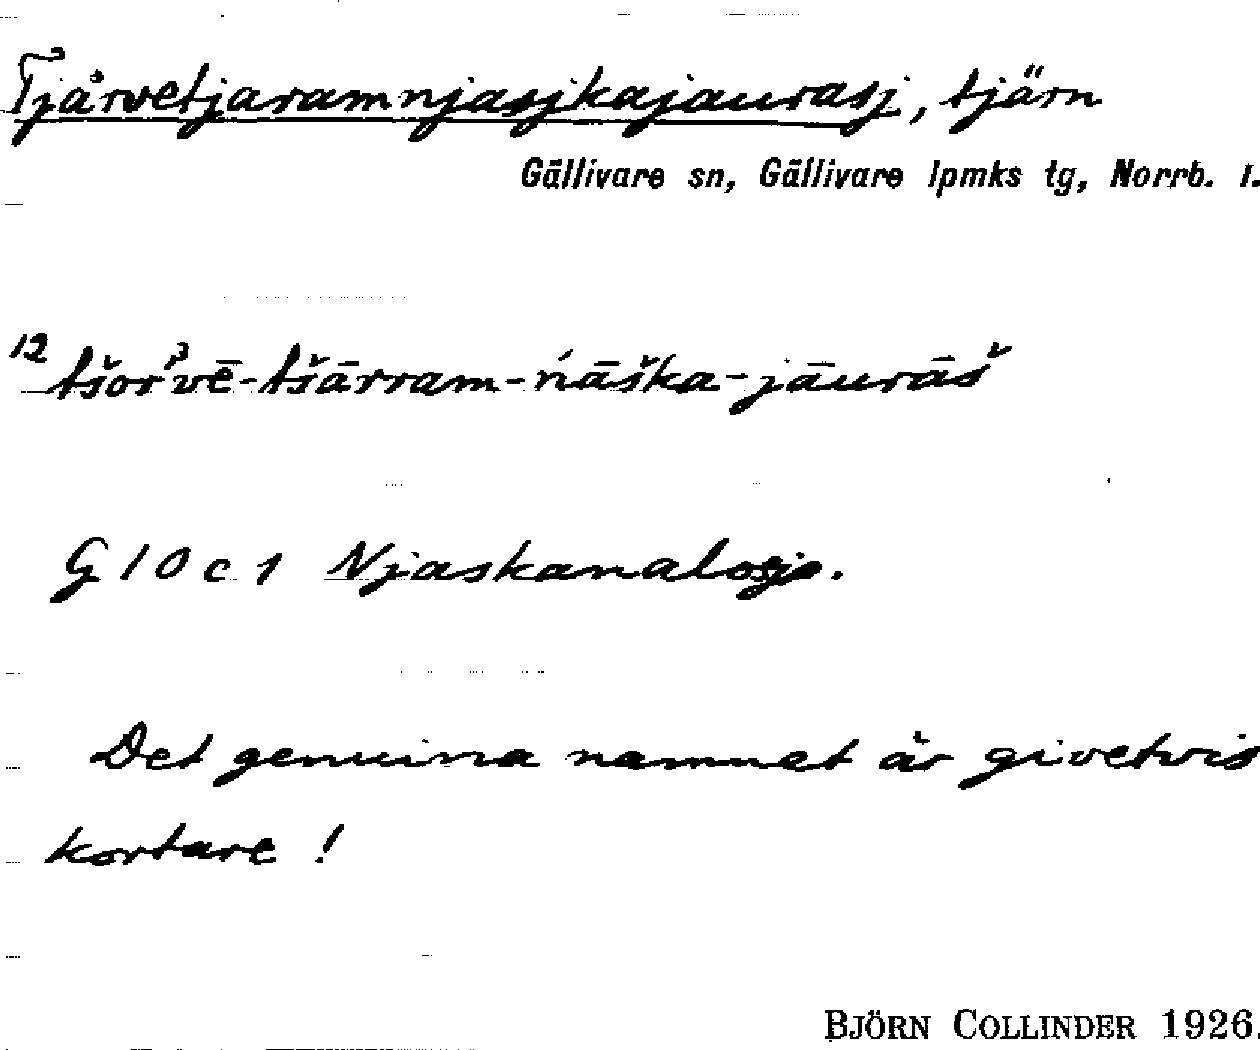 Tjårvetjaramnjasjkajaurasj, tjärn
Gällivare sn, Gällivare lpmks tg, Norrb. l.
12 tšor'vē-tšārram-ńāška-jāurāš
G 10 c 1 Njaskanalosjo.
Det genuina namnet är givetvis
kortare !
BJÖRN COLLINDER 1926.